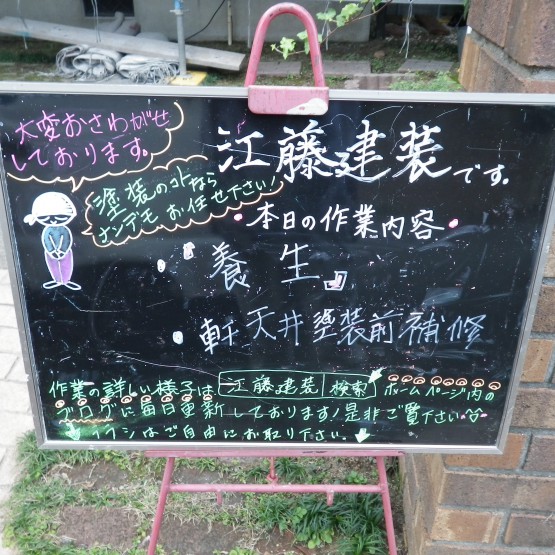 大変おさわがせ
しております。
江藤建装です。
塗装の事なら
ナンデモお任せ下さい!
本日の作業内容
養生
軒天井塗装前補修
作業の詳しい様子は 江藤建装 検索 ホームページ内の
ブログに毎日更新しております!是非ご覧下さい
チラシはご自由にお取り下さい。